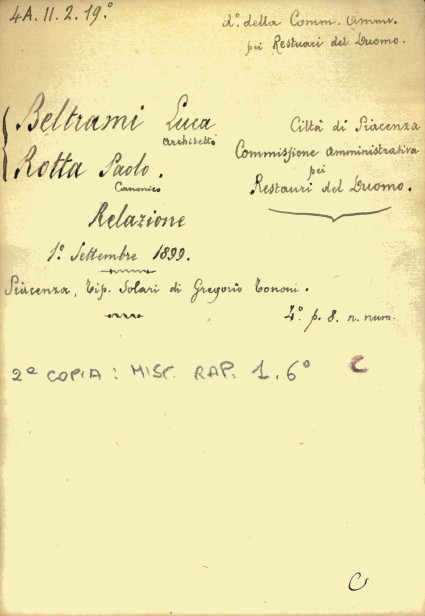 4A. II. 2. 19.°
d.° della Comm. Amm.
pei Restauri del Duomo.
Beltrami Luca
Architetto
Rotta Paolo.
Canonico
Città di Piacenza
Commissione Amministrativa
pei
Restauri del Duomo.
Relazione
1.° Settembre 1899.
Piacenza, Tip. Solari di Gregorio Tononi.
4.° p. 8. n. num.
2ª COPIA: MISC. RAP. 1. 6° C
C